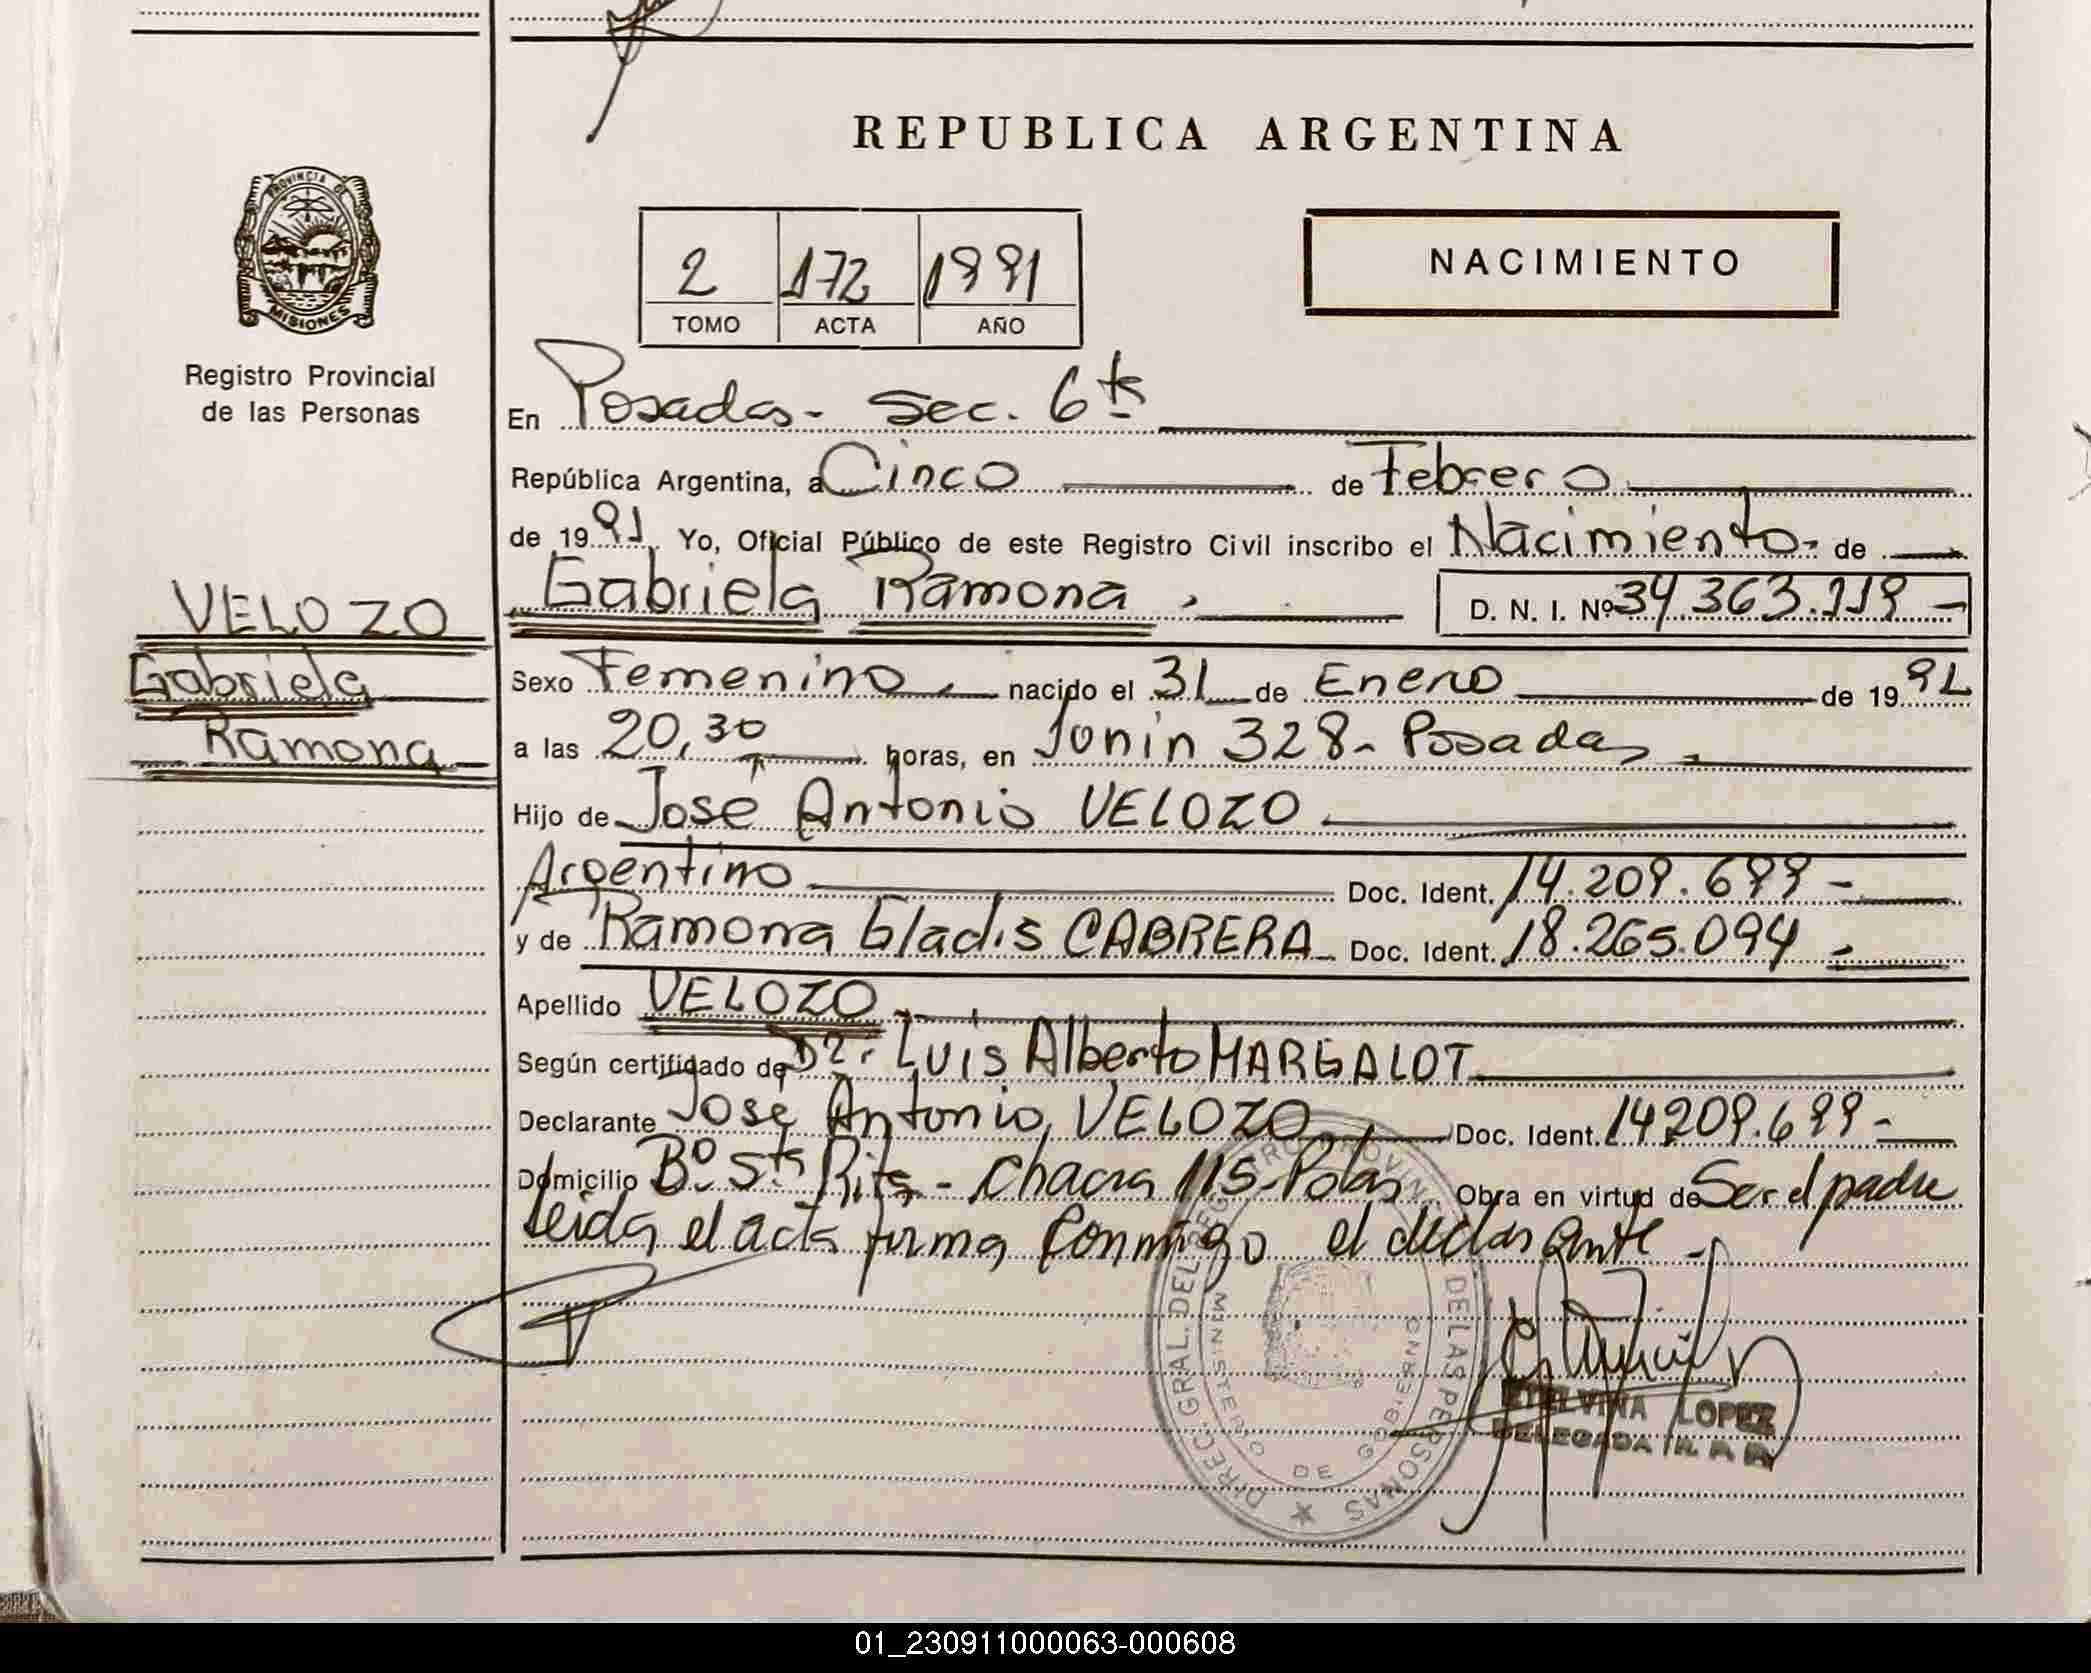 REPUBLICA ARGENTINA
PROVINCIA DE
MISIONES
Registro Provincial
de las Personas
NACIMIENTO
2 172 1991
TOMO ACTA AÑO
En Posadas - Sec. 6ta
República Argentina, a Cinco de Febrero
de 1991 Yo, Oficial Público de este Registro Civil inscribo el Nacimiento - de
VELOZO
Gabriela
Ramona
Gabriela Ramona, D. N. I. Nº 34.363.119 -
Sexo Femenino nacido el 31 de Enero de 1991
a las 20,30 horas, en Junin 328 - Posadas
Hijo de José Antonio VELOZO
Argentino Doc. Ident. 14.209.699 -
y de Ramona Gladis CABRERA Doc. Ident. 18.265.094 -
Apellido VELOZO
Según certificado de Dr. Luis Alberto MARGALOT
Declarante José Antonio VELOZO Doc. Ident. 14209.699 -
Domicilio Bº Sta Rita - Chacra 115 - Pdas Obra en virtud de Ser el padre
Leida el acta firma Conmigo el declarante -
DIREC. GRAL. DEL REGISTRO PROVINCIAL DE LAS PERSONAS
MINISTERIO DE GOBIERNO
ETELVINA LOPEZ
DELEGADA
01_230911000063-000608